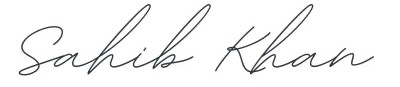 Sahib Khan